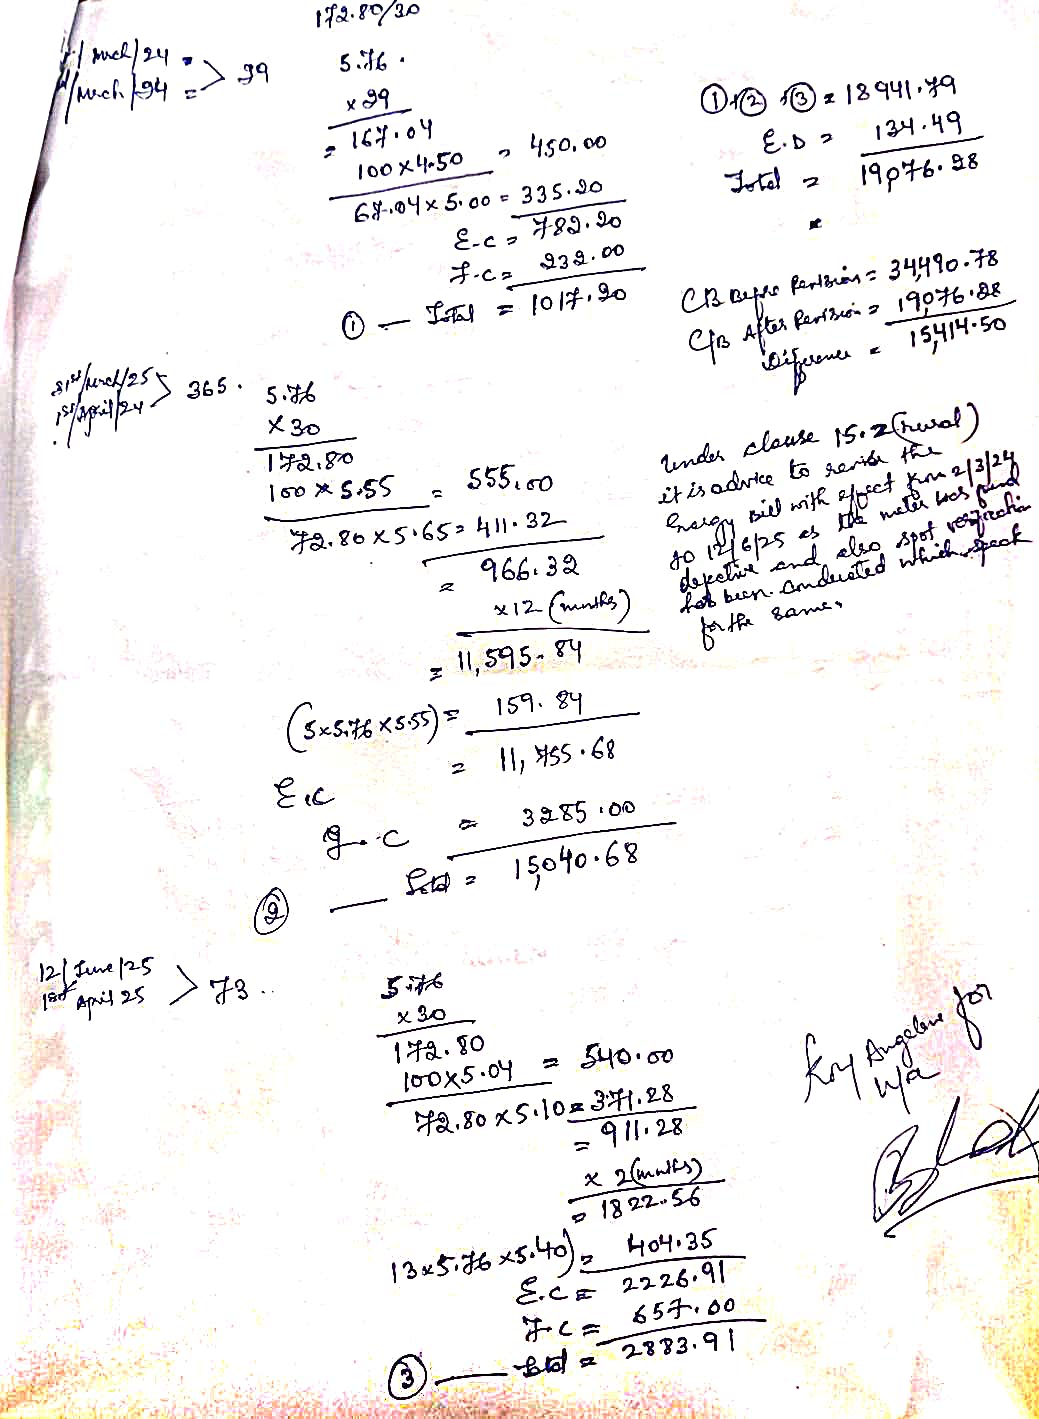 172.80/30
March/24 =
March/24 = > 29
5.76
x 29
= 167.04
100 x 4.50 = 450.00
67.04 x 5.00 = 335.20
E.C = 782.20
F.C = 232.00
① — Total = 1017.20
① + ② + ③ = 18941.79
E.D = 134.49
Total = 19076.28
CB Before Revision = 34,490.78
C/B After Revision = 19,076.28
Difference = 15,414.50
31st/March/25
1st/April/24 > 365.
5.76
x 30
172.80
100 x 5.55 = 555.00
72.80 x 5.65 = 411.32
= 966.32
x 12 (months)
= 11,595.84
(5x5.76 x5.55) = 159.84
= 11,755.68
E.C
F.C = 3285.00
② — Total = 15,040.68
Under clause 15.2 (rural)
it is advice to revise the
Energy bill with effect from 2/3/24
to 12/6/25 as the meter was found
defective and also spot verification
has been conducted which speak
for the same.
12/June/25
1st April 25 > 73
5.76
x 30
172.80
100x5.04 = 540.00
72.80 x 5.10 = 371.28
= 911.28
x 2 (months)
= 1822.56
13x5.76 x5.40) = 404.35
E.C = 2226.91
F.C = 657.00
③ — Total = 2883.91
for